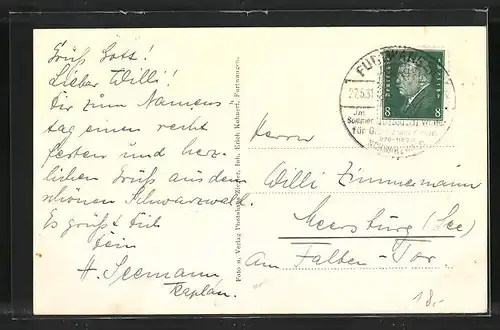 Grüß Gott!
Lieber Willi!
Dir zum Namens
tag einen recht
festen und herz
lichen Gruß aus dem
schönen Schwarzwald.
Es grüßt Dich
Dein
H. Seemann
Kaplan.
Foto u. Verlag Photohaus Ziegler, Inh. Erich Kuhnert, Furtwangen.
FURTWANGEN
27.5.31
Im
Sommer u. Winter
für
870-1150 m
SCHWARZWALD
8 8
Herrn
Willi Zimmermann
Meersburg (See)
Am Falben-Tor.
18.-